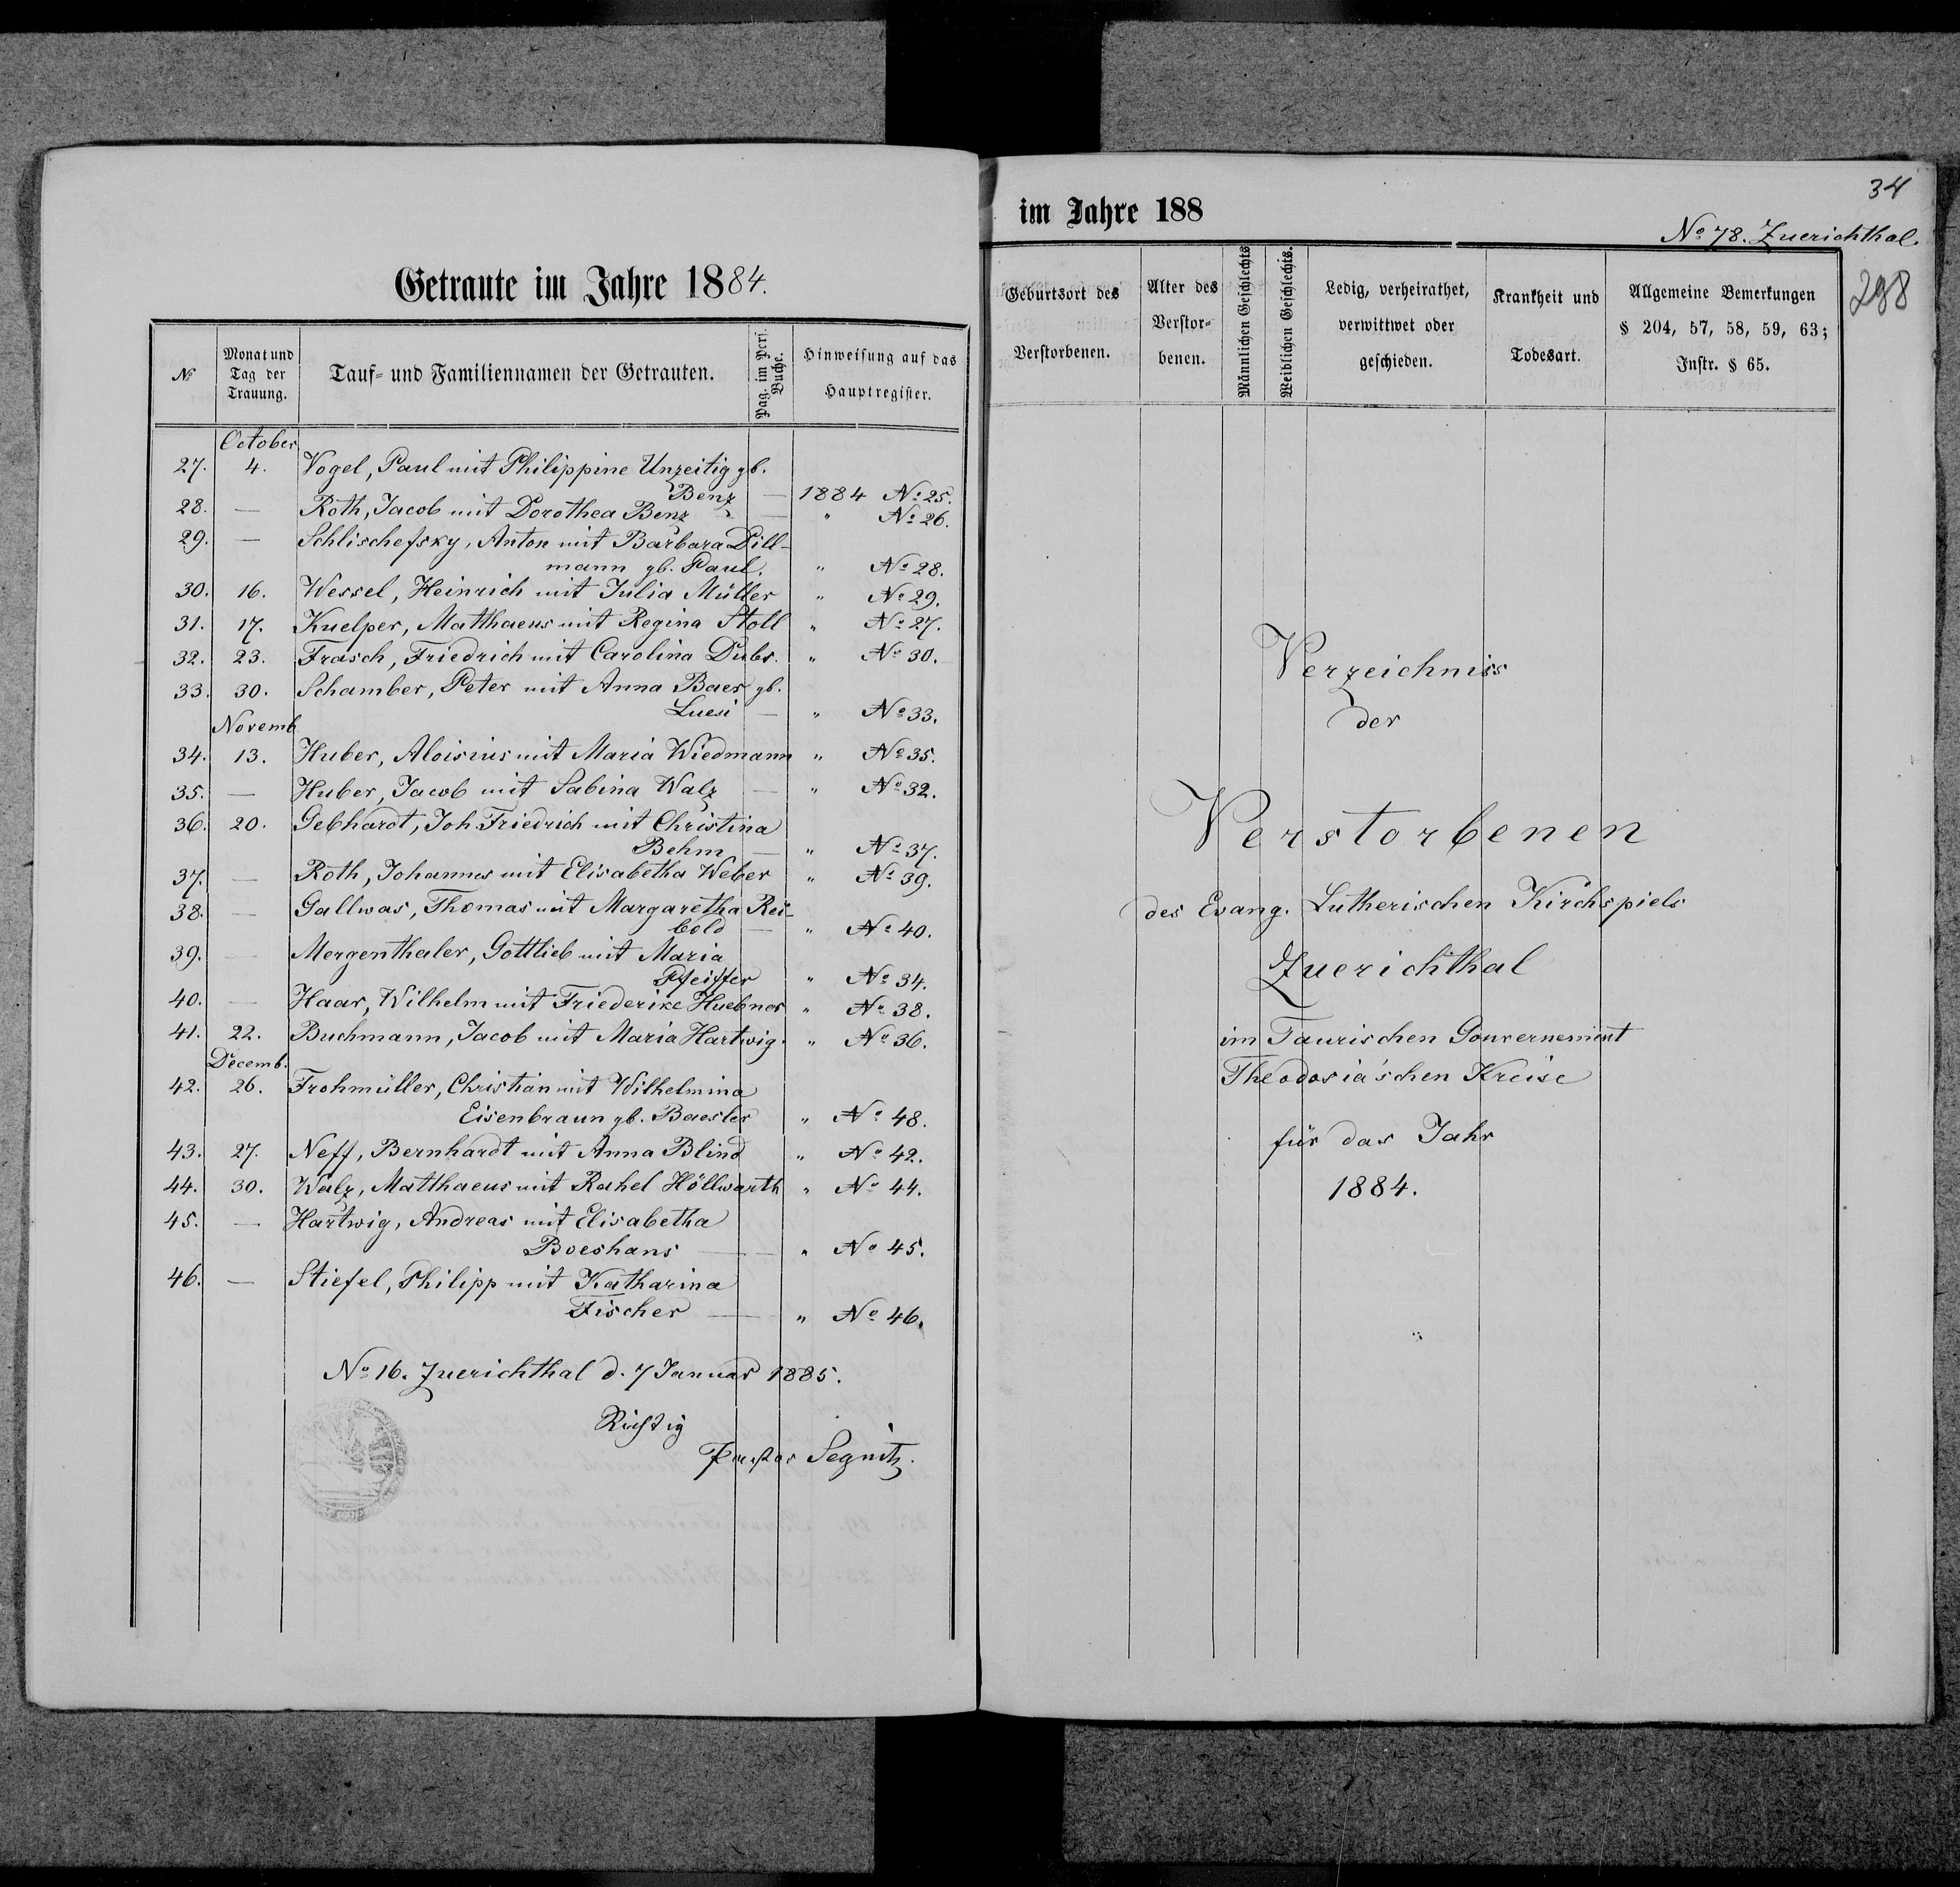 Getraute im Jahre 1884.
№ Monat und Tag der Trauung. Tauf- und Familiennamen der Getrauten. Pag. im Pers. Buche. Hinweisung auf das Hauptregister.
October
27. 4. Vogel, Paul mit Philippine Unzeitig gb.
Benz — 1884 № 25.
28. — Roth, Jacob mit Dorothea Benz — " № 26.
29. — Schlischefsky, Anton mit Barbara Dill-
mann gb. Paul. " № 28.
30. 16. Wessel, Heinrich mit Julia Müller " № 29.
31. 17. Kuelper, Matthaeus mit Regina Stoll " № 27.
32. 23. Frasch, Friedrich mit Carolina Dubs. " № 30.
33. 30. Schamber, Peter mit Anna Baer gb.
Luesi — " № 33.
Novemb.
34. 13. Huber, Aloisius mit Maria Wiedmann " № 35.
35. — Huber, Jacob mit Sabina Walz — " № 32.
36. 20. Gebhardt, Joh. Friedrich mit Christina
Behm — " № 37.
37. — Roth, Johannes mit Elisabetha Weber " № 39.
38. — Gallwas, Thomas mit Margaretha Rei-
bold — " № 40.
39. — Mergenthaler, Gottlieb mit Maria
Pfeiffer " № 34.
40. — Haar, Wilhelm mit Friederike Huebner " № 38.
41. 22. Buchmann, Jacob mit Maria Hartwig. " № 36.
Decemb.
42. 26. Frohmüller, Christian mit Wilhelmina
Eisenbraun gb. Baesler " № 48.
43. 27. Neff, Bernhardt mit Anna Blind " № 42.
44. 30. Walz, Matthaeus mit Rahel Höllwarth " № 44.
45. — Hartwig, Andreas mit Elisabetha
Boeshans — " № 45.
46. — Stiefel, Philipp mit Katharina
Fischer — " № 46.
№ 16. Zuerichthal d. 7 Januar 1885.
Richtig
Pastor Segnitz.
34
im Jahre 188
№ 78. Zuerichthal.
298
Geburtsort des Verstorbenen. Alter des Verstor-benen. Männlichen Geschlechts Weiblichen Geschlechts. Ledig, verheirathet, verwittwet oder geschieden. Krankheit und Todesart. Allgemeine Bemerkungen § 204, 57, 58, 59, 63; Instr. § 65.
Verzeichniss
der
Verstorbenen
des Evang. Lutherischen Kirchspiels
Zuerichthal
im Taurischen Gouvernement
Theodosia'schen Kreise
für das Jahr
1884.